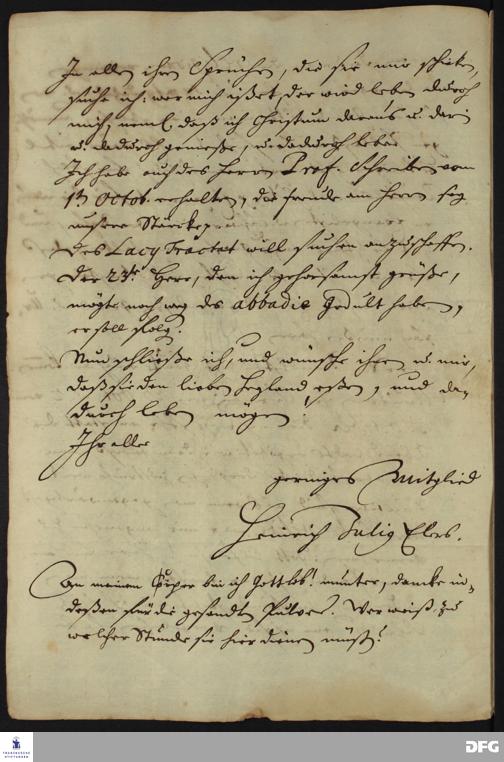 In allen ihren Sprüchen, die sie mir schicken,
suche ich: wer mich ißet, der wird leben durch
mich, neml. daß ich Christum daraus u. darin
u. dadurch genieße, u. dadurch lebe.
Ich habe auch des Herrn Prof. Schreiben vom
13 Octob. erhalten, die freude am Herrn sey
unsere Stärcke.
Des Lacy Tractat will suchen anzuschaffen.
Der 23te Herr, den ich gehorsamst grüße,
mögte noch weg. des abbadie Gedult haben,
er soll folg.
Nun schließe ich, und wünsche ihnen u. mir,
daß sie den lieben Heyland eßen, und da-
durch leben mögen!
Ihr aller
geringes Mitglied
Heinrich Julius Elers.
An meinem Cörper bin ich Gottlob! munter, dancke in-
deßen für die gesandten Pulver. Wer weiß zu
welcher Stunde sie hier dienen müßen?
FRANCKESCHE
STIFTUNGEN
DFG